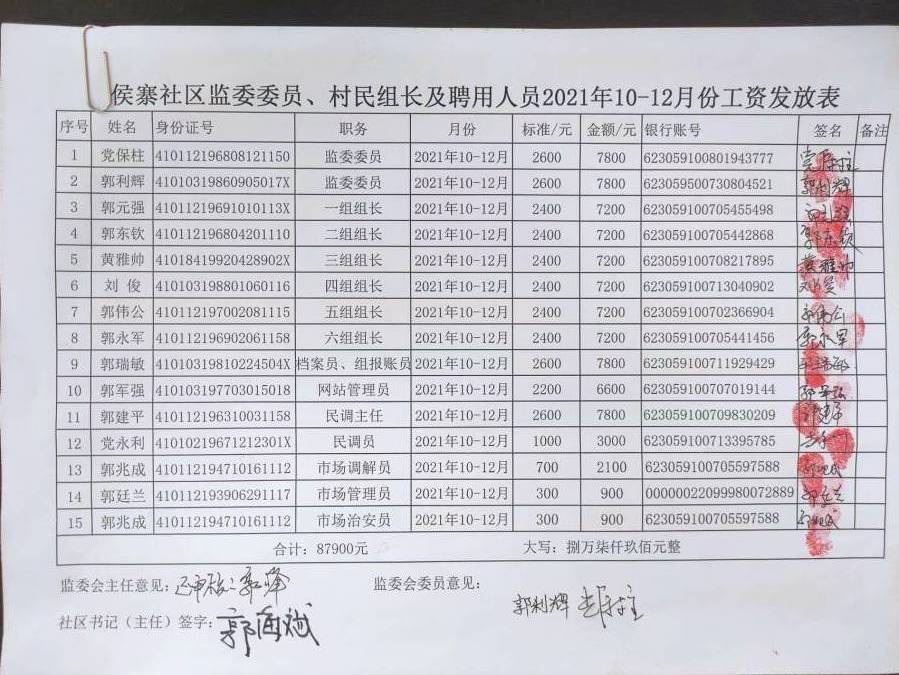 侯寨社区监委委员、村民组长及聘用人员2021年10-12月份工资发放表
序号 姓名 身份证号 职务 月份 标准/元 金额/元 银行账号 签名 备注
1 党保柱 410112196808121150 监委委员 2021年10-12月 2600 7800 623059100801943777
2 郭利辉 41010319860905017X 监委委员 2021年10-12月 2600 7800 623059500730804521 郭利辉
3 郭元强 41011219691010113X 一组组长 2021年10-12月 2400 7200 623059100705455498
4 郭东钦 410112196804201110 二组组长 2021年10-12月 2400 7200 623059100705442868
5 黄雅帅 41018419920428902X 三组组长 2021年10-12月 2400 7200 623059100708217895 黄雅帅
6 刘 俊 410103198801060116 四组组长 2021年10-12月 2400 7200 623059100713040902 刘俊
7 郭伟公 410112197002081115 五组组长 2021年10-12月 2400 7200 623059100702366904
8 郭永军 410112196902061158 六组组长 2021年10-12月 2400 7200 623059100705441456
9 郭瑞敏 41010319810224504X 档案员、组报账员 2021年10-12月 2600 7800 623059100711929429
10 郭军强 410103197703015018 网站管理员 2021年10-12月 2200 6600 623059100707019144
11 郭建平 410112196310031158 民调主任 2021年10-12月 2600 7800 623059100709830209
12 党永利 41010219671212301X 民调员 2021年10-12月 1000 3000 623059100713395785
13 郭兆成 410112194710161112 市场调解员 2021年10-12月 700 2100 623059100705597588
14 郭廷兰 410112193906291117 市场管理员 2021年10-12月 300 900 00000022099980072889
15 郭兆成 410112194710161112 市场治安员 2021年10-12月 300 900 623059100705597588
合计：87900元 大写：捌万柒仟玖佰元整
监委会主任意见： 监委会委员意见：
郭利辉
社区书记（主任）签字：